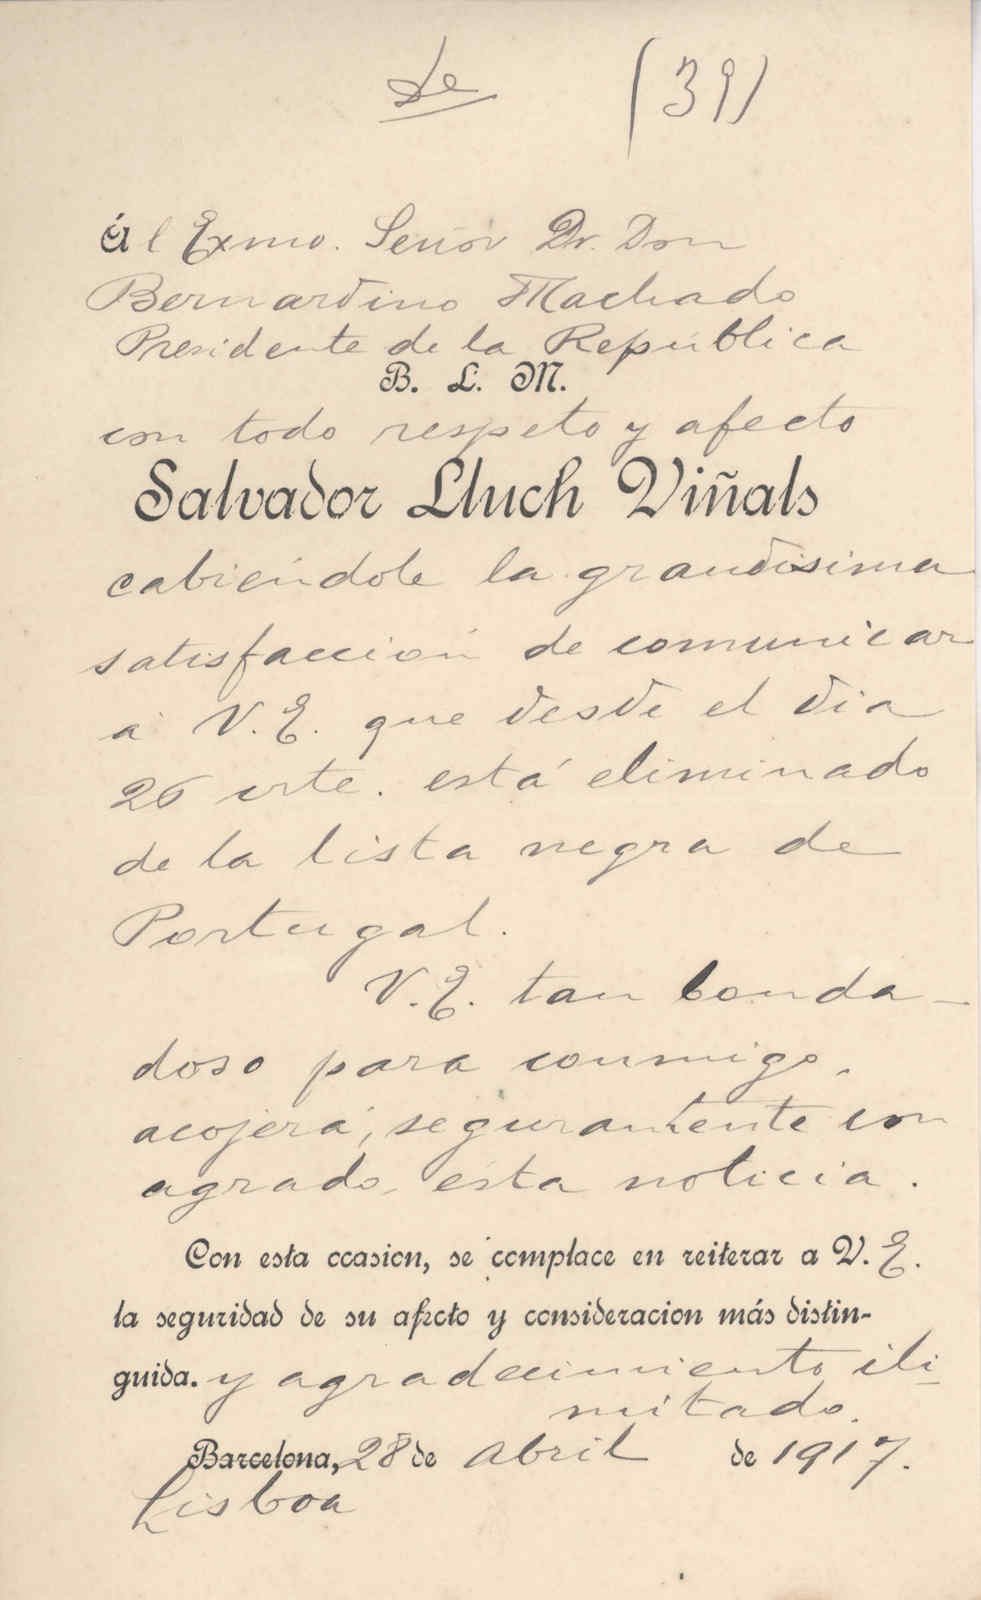 (39)
Al Exmo. Señor Dr. Don
Bernardino Machado
Presidente de la República
B. L. M.
con todo respeto y afecto
Salvador Lluch Viñals
cabiéndole la grandisima
satisfacción de comunicar
á V. E. que desde el dia
26 crte. está eliminado
de la lista negra de
Portugal.
V. E. tan bonda-
doso para conmigo,
acojerá, seguramente con
agrado, ésta noticia.
Con esta ocasion, se complace en reiterar a V. E.
la seguridad de su afecto y consideracion más distin-
guida. y agradecimiento ili-
mitado.
Barcelona, 28 de Abril de 1917.
Lisboa